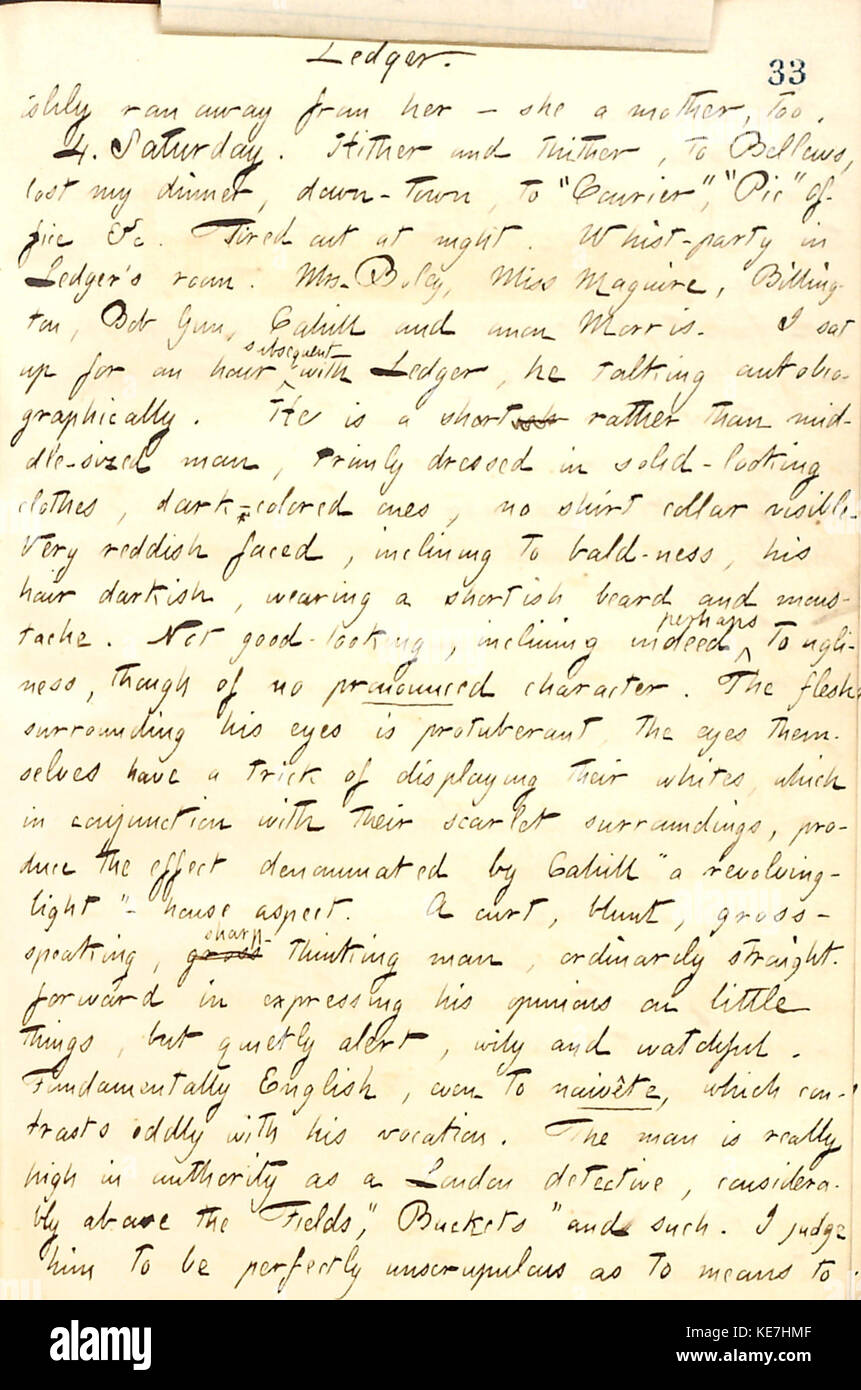 Ledger.
33
ishly ran away from her — she a mother, too.
4. Saturday. Hither and thither, to Bellews,
lost my dinner, down-town, to "Courier", "Pic" of-
fice &c. Tired out at night. Whist-party in
Ledger's room. Mrs. Boley, Miss Maguire, Billing-
ton, Bob Gun, Cahill and anon Morris. I sat
up for an hour subsequent with Ledger, he talking autobio-
graphically. He is a shortish rather than mid-
dle-sized man, primly dressed in solid-looking
clothes, dark-colored ones, no shirt collar visible.
Very reddish faced, inclining to bald-ness, his
hair darkish, wearing a shortish beard and mous-
tache. Not good-looking, inclining indeed perhaps to ugli-
ness, though of no pronounced character. The flesh
surrounding his eyes is protuberant, the eyes them-
selves have a trick of displaying their whites, which
in conjunction with their scarlet surroundings, pro-
duce the effect denominated by Cahill "a revolving-
light"-house aspect. A curt, blunt, gross-
speaking, gross sharp-thinking man, ordinarly straight-
forward in expressing his opinions on little
things, but quietly alert, wily and watchful.
Fundamentally English, even to naivête, which con-
trasts oddly with his vocation. The man is really
high in authority as a London detective, considera-
bly above the "Fields," "Buckets" and such. I judge
him to be perfectly unscrupulous as to means to
alamy
Image ID: KE7HMF
www.alamy.com